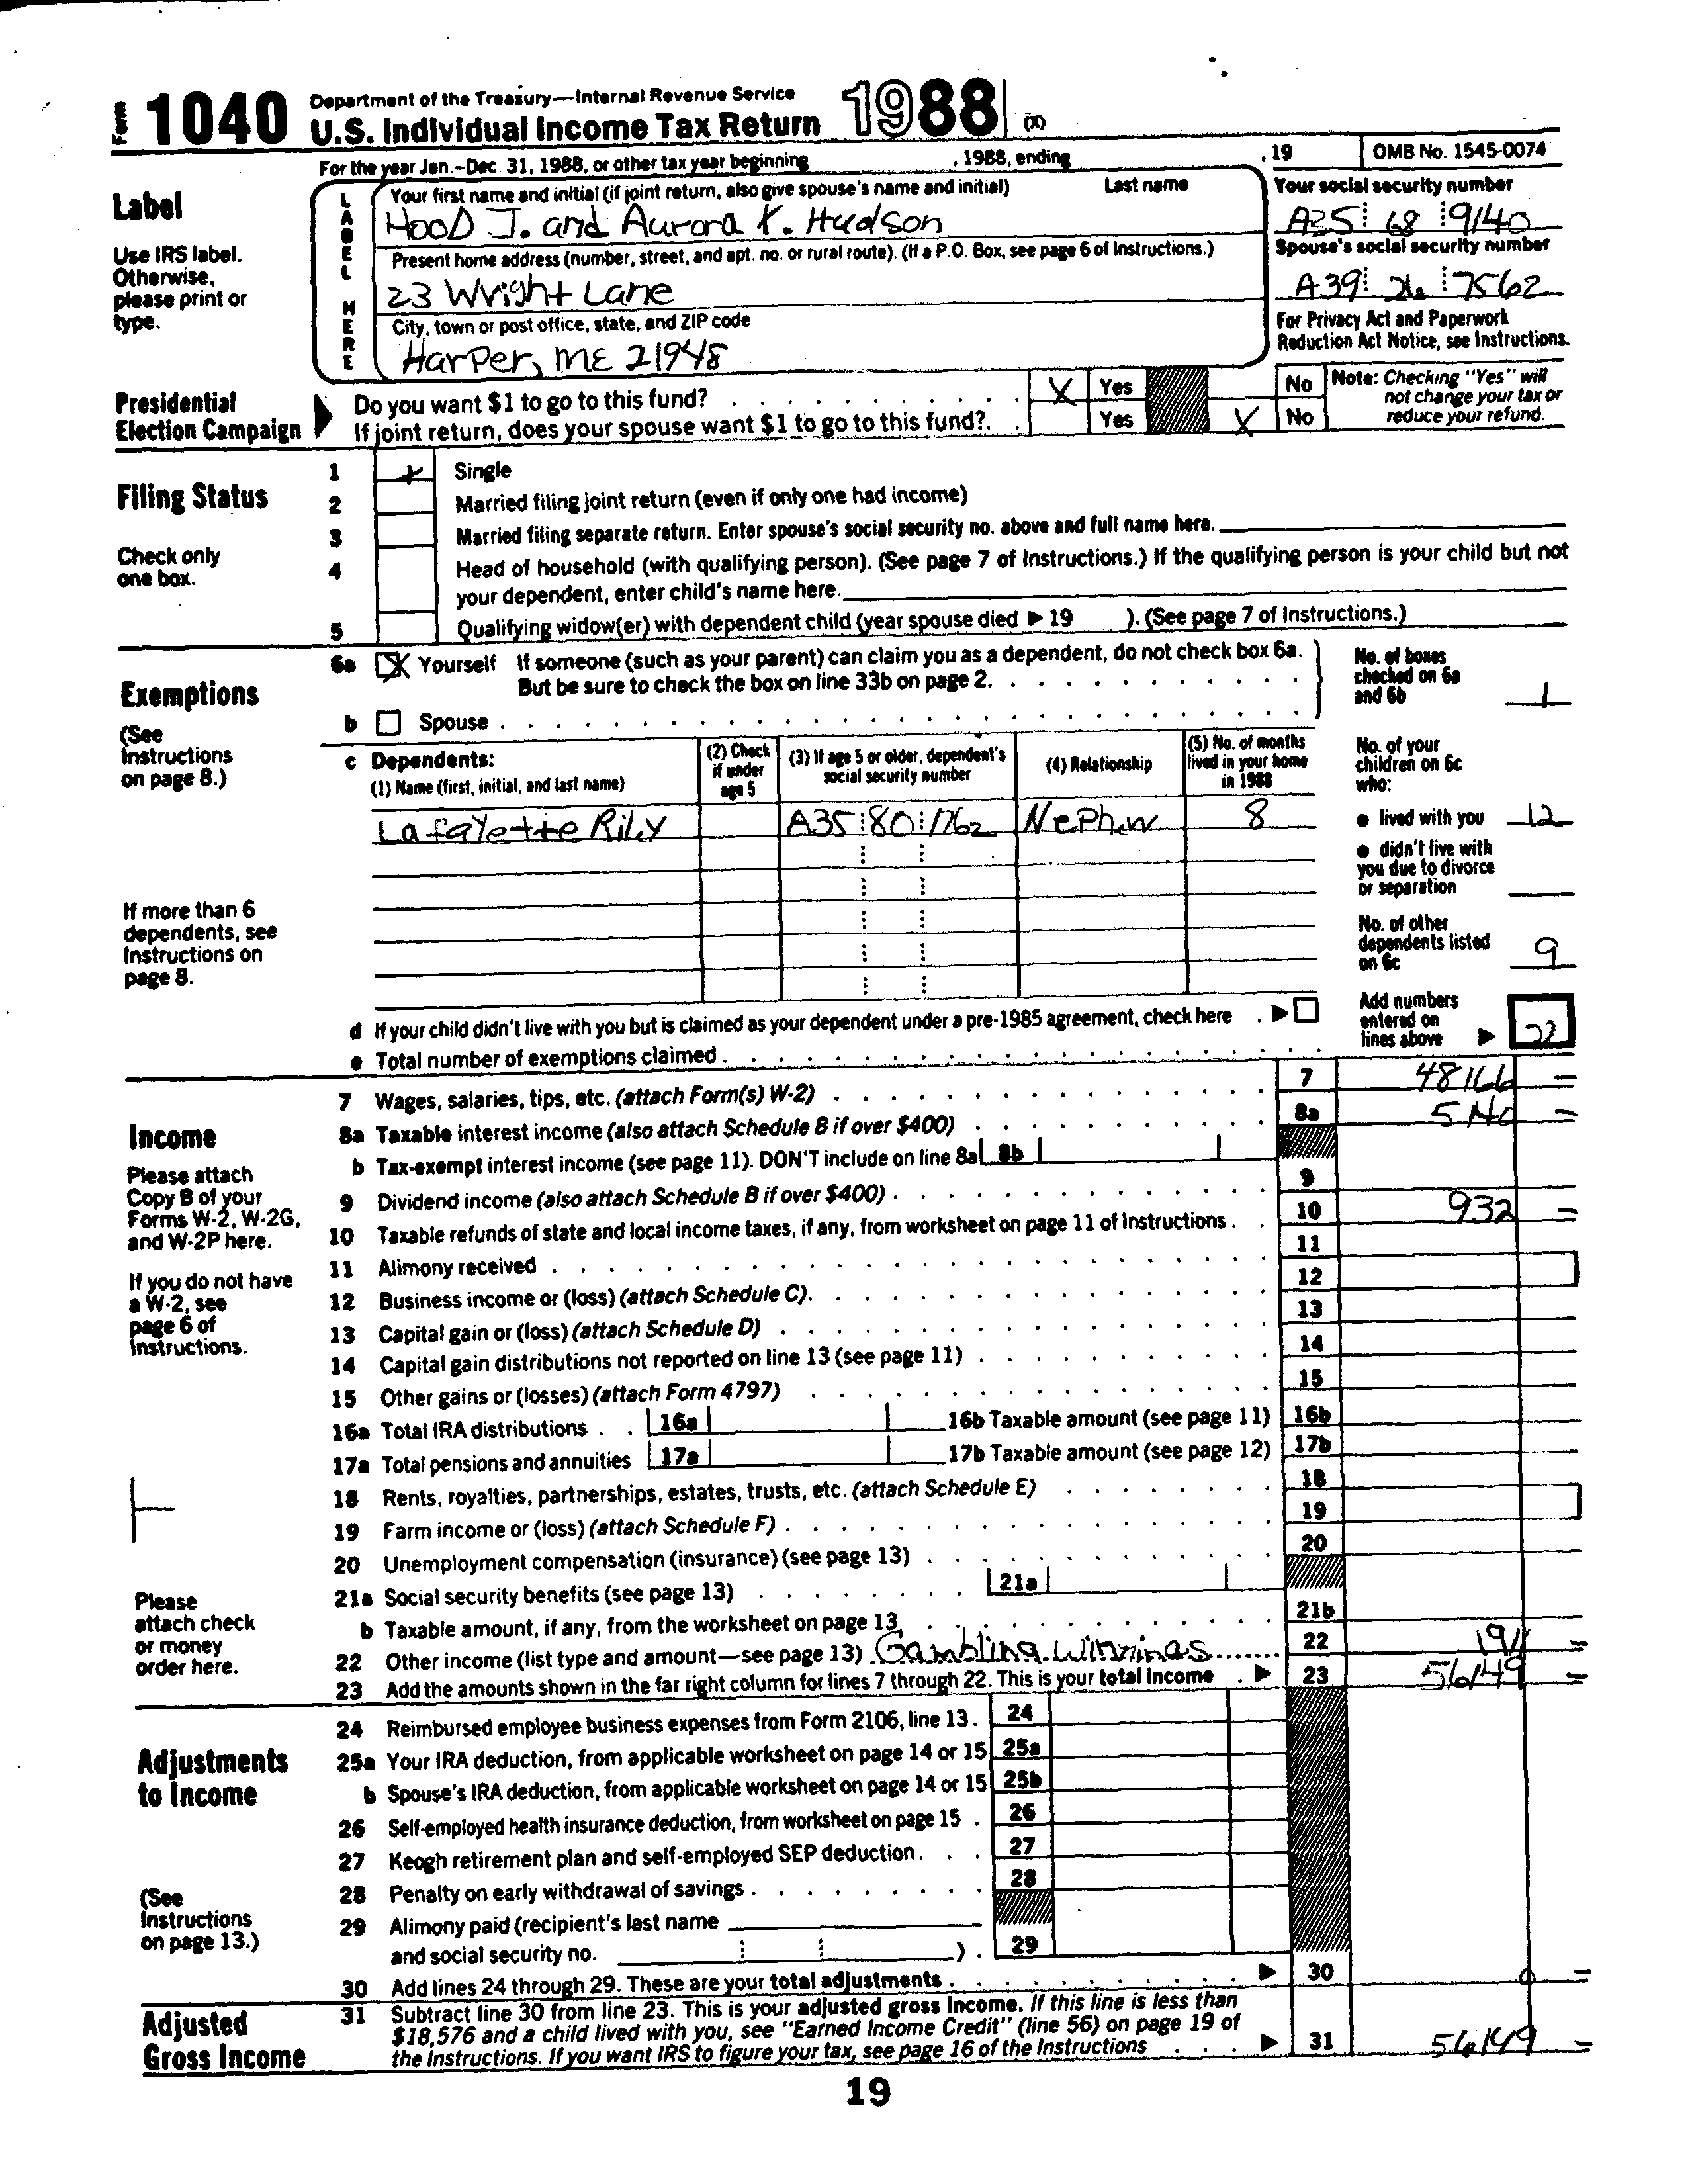 Form 1040 Department of the Treasury—Internal Revenue Service
U.S. Individual Income Tax Return 1988 (X)
For the year Jan.-Dec. 31, 1988, or other tax year beginning , 1988, ending , 19 OMB No. 1545-0074
Label
Use IRS label.
Otherwise,
please print or
type.
LABEL HERE
Your first name and initial (if joint return, also give spouse's name and initial) Last name
Hood J. and Aurora K. Hudson
Your social security number
A35 68 9140
Present home address (number, street, and apt. no. or rural route). (If a P.O. Box, see page 6 of Instructions.)
23 Wright Lane
Spouse's social security number
A39 26 7562
City, town or post office, state, and ZIP code
Harper, ME 21948
For Privacy Act and Paperwork
Reduction Act Notice, see Instructions.
Presidential
Election Campaign
Do you want $1 to go to this fund? X Yes No
If joint return, does your spouse want $1 to go to this fund?. Yes X No
Note: Checking "Yes" will
not change your tax or
reduce your refund.
Filing Status
Check only
one box.
1 X Single
2 Married filing joint return (even if only one had income)
3 Married filing separate return. Enter spouse's social security no. above and full name here.
4 Head of household (with qualifying person). (See page 7 of Instructions.) If the qualifying person is your child but not
your dependent, enter child's name here.
5 Qualifying widow(er) with dependent child (year spouse died ▶ 19 ). (See page 7 of Instructions.)
Exemptions
(See
Instructions
on page 8.)
6a X Yourself If someone (such as your parent) can claim you as a dependent, do not check box 6a.
But be sure to check the box on line 33b on page 2.
b Spouse
No. of boxes
checked on 6a
and 6b 1
c Dependents:
(1) Name (first, initial, and last name)
(2) Check
if under
age 5
(3) If age 5 or older, dependent's
social security number
(4) Relationship
(5) No. of months
lived in your home
in 1988
Lafayette Riley A35 80 1762 Nephew 8
No. of your
children on 6c
who:
● lived with you 12
● didn't live with
you due to divorce
or separation
No. of other
dependents listed
on 6c 9
If more than 6
dependents, see
Instructions on
page 8.
d If your child didn't live with you but is claimed as your dependent under a pre-1985 agreement, check here
e Total number of exemptions claimed
Add numbers
entered on
lines above ▶ 22
Income
Please attach
Copy B of your
Forms W-2, W-2G,
and W-2P here.
If you do not have
a W-2, see
page 6 of
Instructions.
Please
attach check
or money
order here.
7 Wages, salaries, tips, etc. (attach Form(s) W-2) 7 48166
8a Taxable interest income (also attach Schedule B if over $400) 8a 5140
b Tax-exempt interest income (see page 11). DON'T include on line 8a 8b
9 Dividend income (also attach Schedule B if over $400) 9
10 Taxable refunds of state and local income taxes, if any, from worksheet on page 11 of Instructions 10 932
11 Alimony received 11
12 Business income or (loss) (attach Schedule C). 12
13 Capital gain or (loss) (attach Schedule D) 13
14 Capital gain distributions not reported on line 13 (see page 11) 14
15 Other gains or (losses) (attach Form 4797) 15
16a Total IRA distributions 16a 16b Taxable amount (see page 11) 16b
17a Total pensions and annuities 17a 17b Taxable amount (see page 12) 17b
18 Rents, royalties, partnerships, estates, trusts, etc. (attach Schedule E) 18
19 Farm income or (loss) (attach Schedule F) 19
20 Unemployment compensation (insurance) (see page 13) 20
21a Social security benefits (see page 13) 21a
b Taxable amount, if any, from the worksheet on page 13 21b
22 Other income (list type and amount—see page 13) Gambling Winnings 22 1911
23 Add the amounts shown in the far right column for lines 7 through 22. This is your total income ▶ 23 56149
Adjustments
to Income
(See
Instructions
on page 13.)
24 Reimbursed employee business expenses from Form 2106, line 13. 24
25a Your IRA deduction, from applicable worksheet on page 14 or 15 25a
b Spouse's IRA deduction, from applicable worksheet on page 14 or 15 25b
26 Self-employed health insurance deduction, from worksheet on page 15 26
27 Keogh retirement plan and self-employed SEP deduction 27
28 Penalty on early withdrawal of savings 28
29 Alimony paid (recipient's last name
and social security no. ) 29
30 Add lines 24 through 29. These are your total adjustments ▶ 30 0
Adjusted
Gross Income
31 Subtract line 30 from line 23. This is your adjusted gross income. If this line is less than
$18,576 and a child lived with you, see "Earned Income Credit" (line 56) on page 19 of
the Instructions. If you want IRS to figure your tax, see page 16 of the Instructions ▶ 31 56149
19